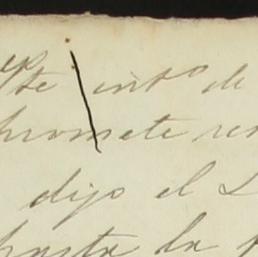 te int.º de
promete re
dijo el L
hasta la